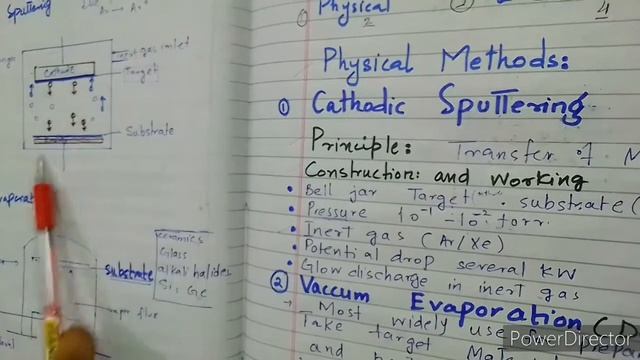 Sputtering
Ar → Ar+
inert gas inlet
Cathode
Target
Substrate
substrate
ceramics
Glass
alkali halides
Si, Ge
vapor flux
① Physical
2
②
4
Physical Methods:
① Cathodic Sputtering
Principle: Transfer of M
Construction: and Working
• Bell jar Target substrate (
• Pressure 10-1 - 10-2 torr.
• Inert gas (Ar/Xe)
• Potential drop several KW
• Glow discharge in inert gas
② Vaccum Evaporation
→ Most widely use
Take target
and
PowerDirector